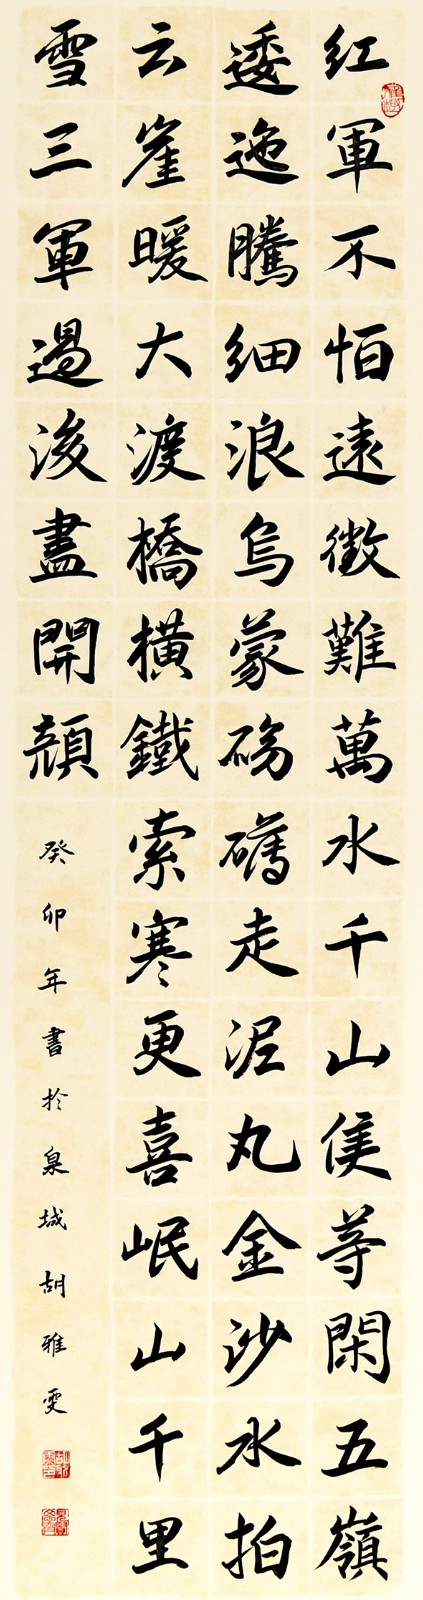 红軍不怕遠徵難萬水千山侯等閑五嶺
逶迤騰细浪烏蒙磅礴走泥丸金沙水拍
云崖暖大渡橋橫鐵索寒更喜岷山千里
雪三軍過後盡開顏
癸卯年書於泉城胡雅雯